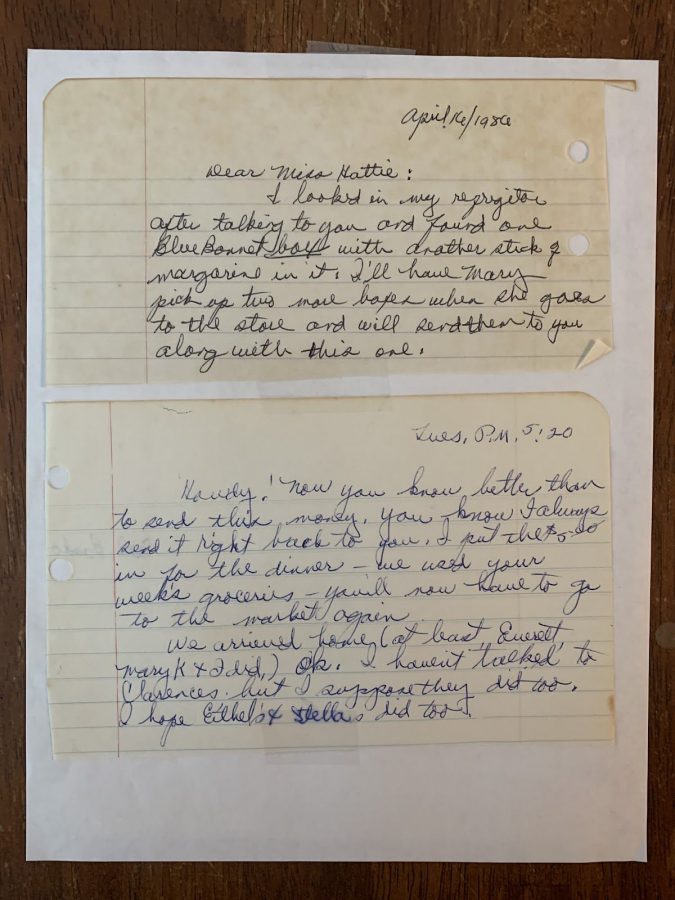 April 16/1986
Dear Miss Hattie:
I looked in my refrigitor
after talking to you and found one
Blue Bonnet box with another stick of
margarine in it. I'll have Mary
pick up two more boxes when she goes
to the store and will send them to you
along with this one.
Tues, P.M. 5:20
Howdy! Now you know better than
to send this money. You know I always
send it right back to you. I put the $5.00
in for the dinner – we used your
week's groceries – you'll now have to go
to the market again
We arrived home (at least Everett,
Mary K & I did.) Ok. I haven't talked to
Clarences but I suppose they did too.
I hope Ethel's & Stella's did too.